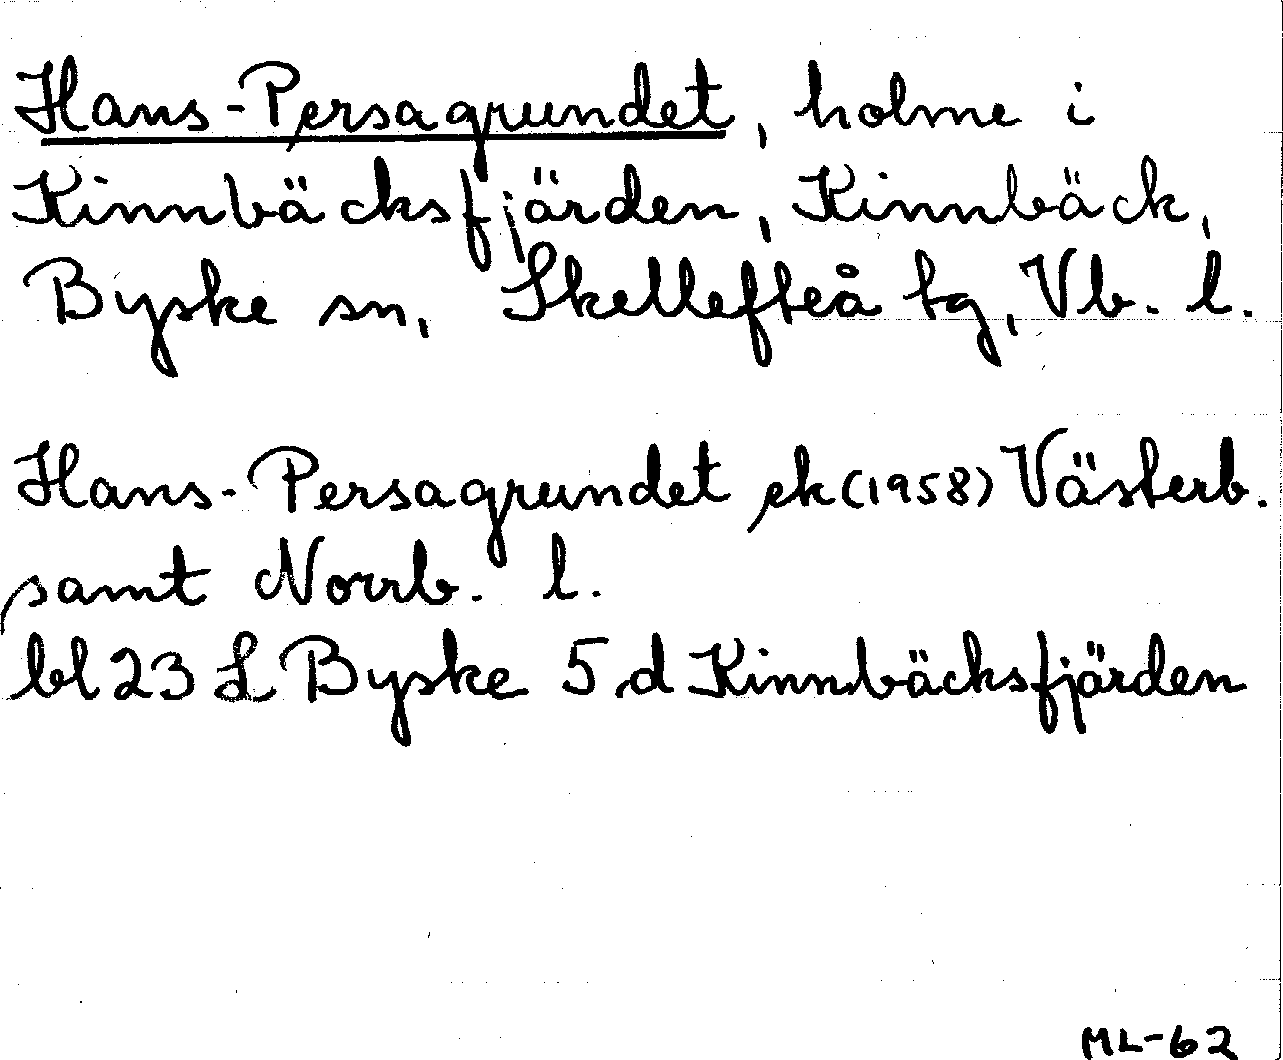 Hans-Persagrundet, holme i
Kinnbäcksfjärden, Kinnbäck,
Byske sn, Skellefteå tg, Vb. l.
Hans-Persagrundet ek (1958) Västerb.
samt Norrb. l.
bl 23 L Byske 5 d Kinnbäcksfjärden
ML-62